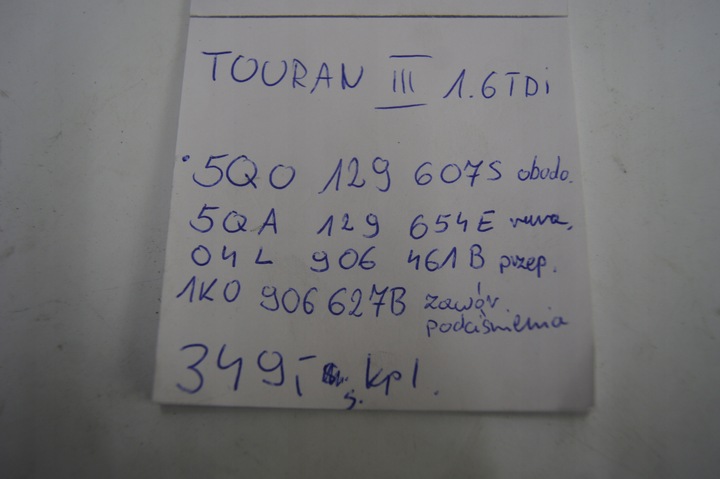 TOURAN III 1.6TDi
5Q0 129 607S obudo.
5QA 129 654E rura.
04L 906 461B przep.
1K0 906 627B zawór
podciśnienia
349,- kpl.